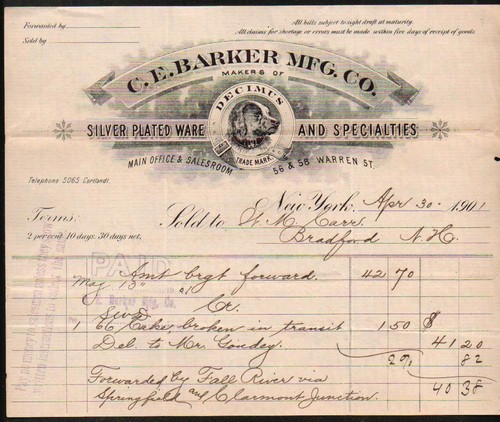 Forwarded by
Sold by
All bills subject to sight draft at maturity.
All claims for shortage or errors must be made within five days of receipt of goods.
C. E. BARKER MFG. CO.
MAKERS OF
DECIMUS
SILVER PLATED WARE AND SPECIALTIES
TRADE MARK.
MAIN OFFICE & SALESROOM 56 & 58 WARREN ST.
Telephone 5065 Cortlandt.
New York, Apr 30 1901
Terms: Sold to W. M. Carr
2 per cent. 10 days. 30 days net. Bradford N. H.
PAID
Amt brgt forward. 42 70
May 13"
Barker Mfg. Co.
Cr.
1 66 Cake broken in transit 1 50 $
Del. to Mr. Goudey. 41 20
2% 82
Forwarded by Fall River via 40 38
Springfield and Clarmont Junction.